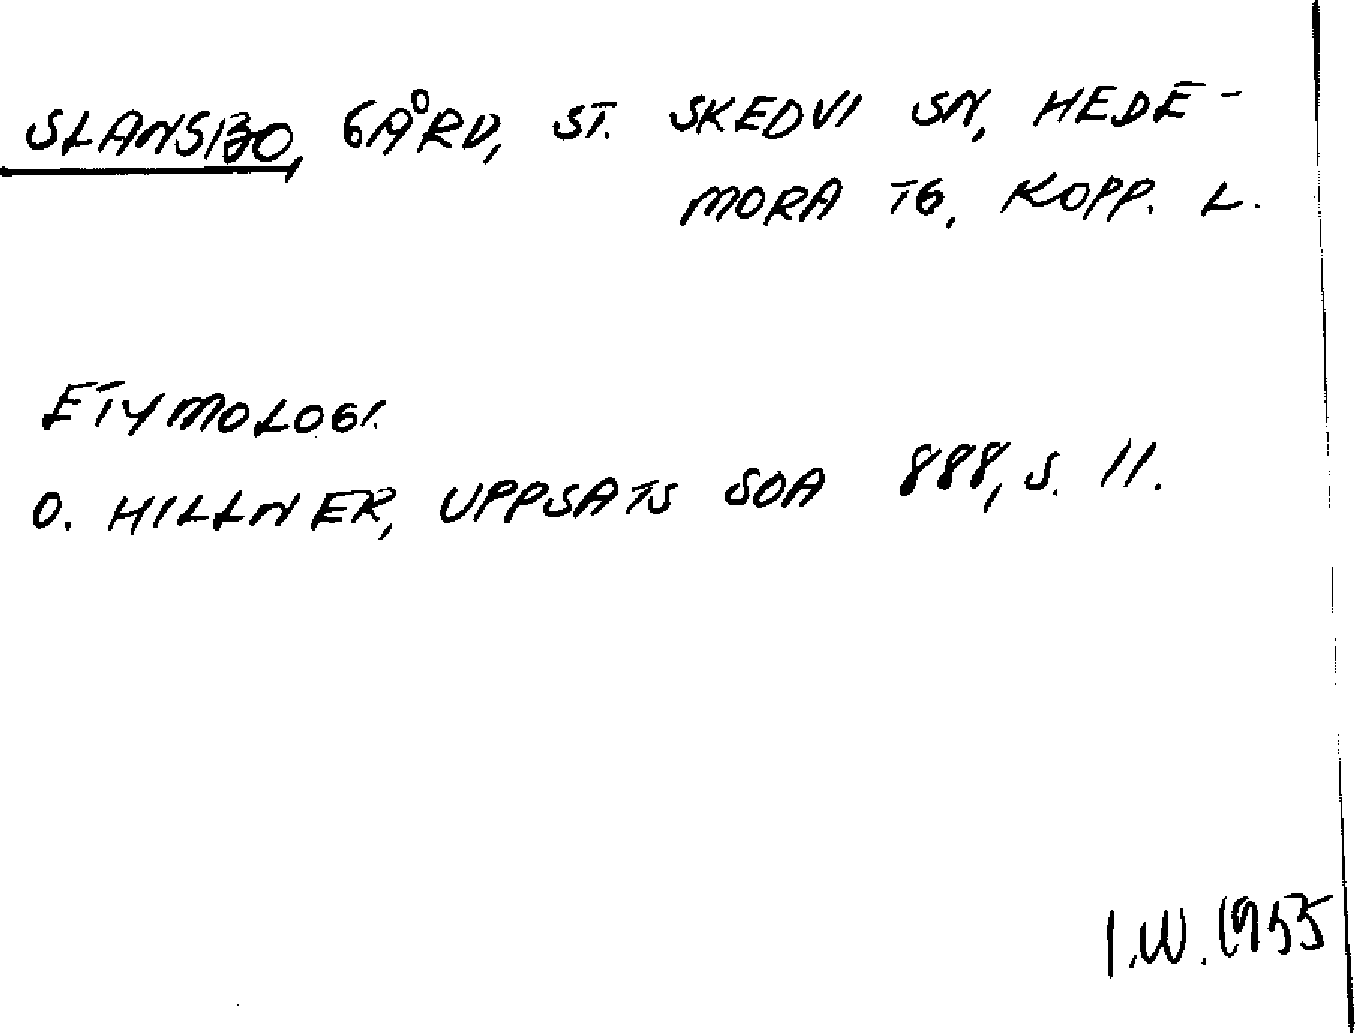 SLANSBO, GÅRD, ST. SKEDVI SN, HEDE-
MORA TG, KOPP. L.
ETYMOLOGI.
O. HILLNER, UPPSATS SOA 888, S. 11.
I.W. 1955